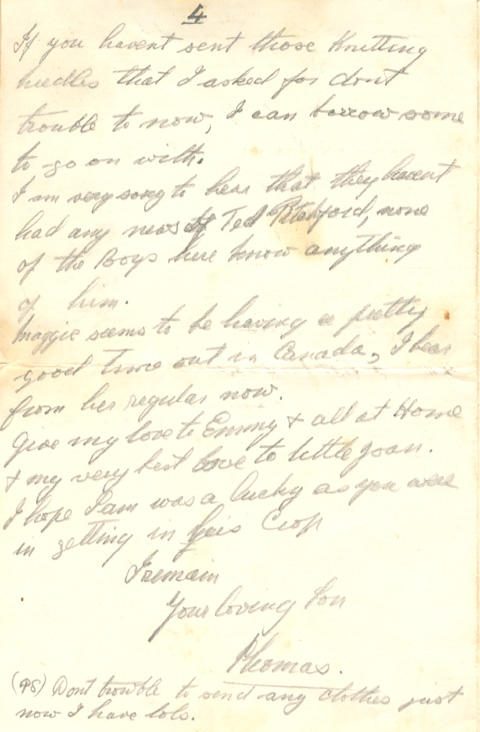 4
If you havent sent those Knitting
needles that I asked for dont
trouble to now, I can borrow some
to go on with.
I am very sorry to hear that they havent
had any news of Ted Pitchford, none
of the Boys here know anything
of him.
Maggie seems to be having a pretty
good time out in Canada, I hear
from her regular now.
Give my love to Emmy & all at Home
& my very best love to little Joan.
I hope Sam was a lucky as you were
in getting in his Crop
I remain
Your loving Son
Thomas.
(PS) Dont trouble to send any clothes just
now I have lots.